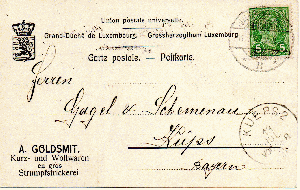 Union postale universelle.
Grand-Duché de Luxembourg. - Grossherzogthum Luxemburg
Carte postale. - Postkarte.
Herren
Gagel & Schemenau
Küps
Bayern
KUEPS
A. GOLDSMIT.
Kurz- und Wollwaren
en gros
Strumpfstrickerei